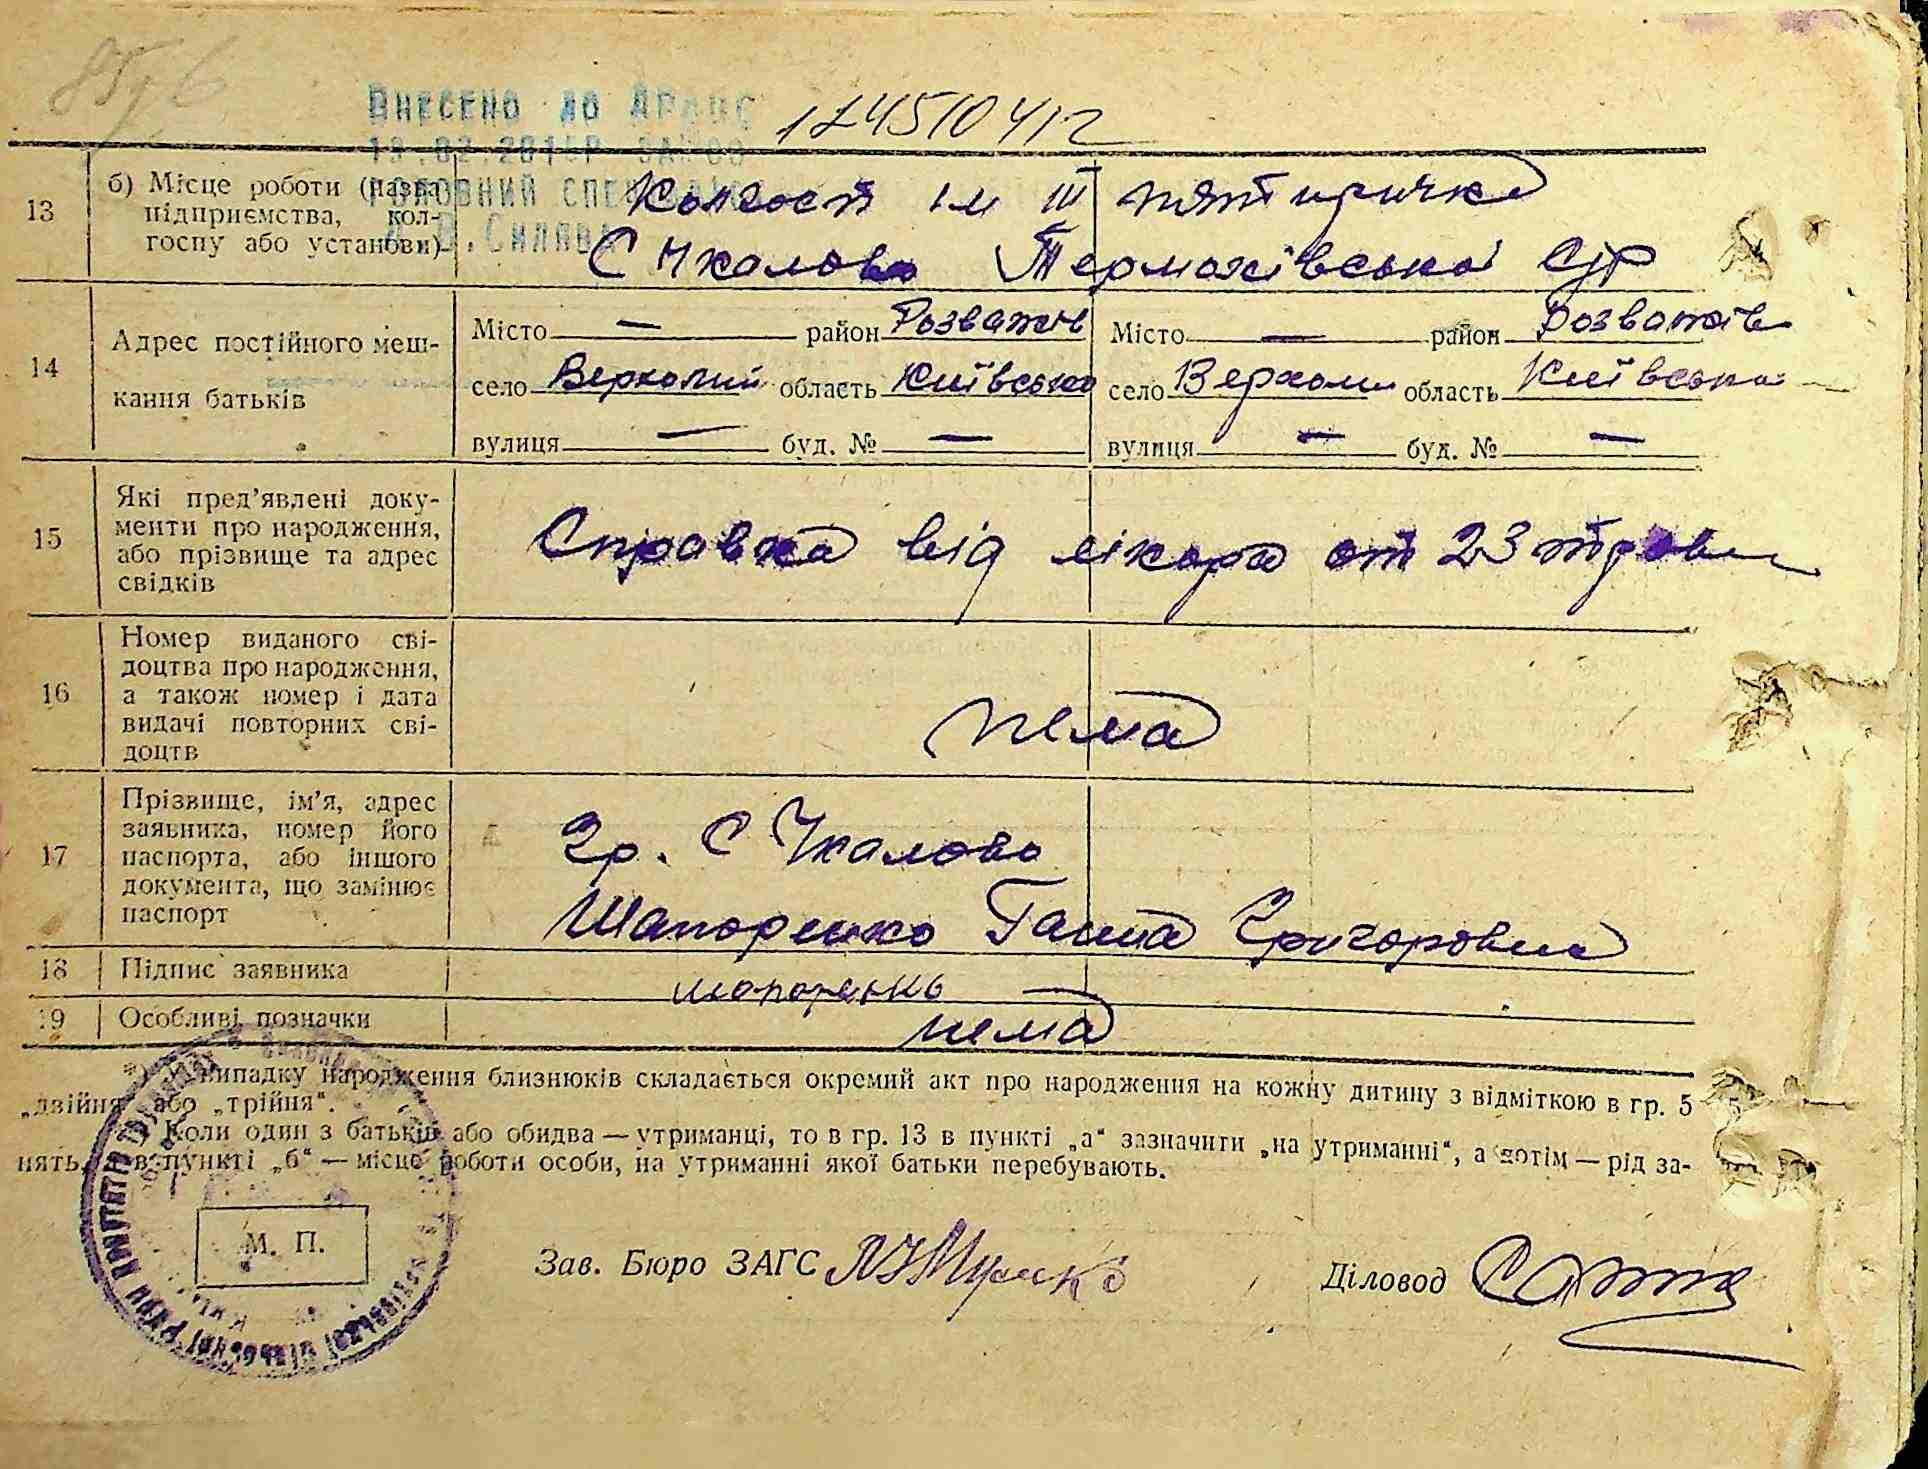 ВНЕСЕНО ДО ДРАЦС
174510412
13 б) Місце роботи (назва підприємства, колгоспу або установи)
Колгосп ім III пятирічка
С Чкалово Термахівської С/Р
14 Адрес постійного мешкання батьків
Місто — район Розважів Місто — район Розважів
село область Київська село область Київська
вулиця — буд. № — вулиця — буд. № —
15 Які пред'явлені документи про народження, або прізвище та адрес свідків
Справка від лікара от 23 травн
16 Номер виданого свідоцтва про народження, а також номер і дата видачі повторних свідоцтв
нема
17 Прізвище, ім'я, адрес заявника, номер його паспорта, або іншого документа, що замінює паспорт
Гр. С Чкалово
Шапоренко Ганна Григоровна
18 Підпис заявника
шапоренко
19 Особливі позначки
нема
*) У випадку народження близнюків складається окремий акт про народження на кожну дитину з відміткою в гр. 5
„двійня" або „трійня".
Коли один з батьків або обидва — утриманці, то в гр. 13 в пункті „а" зазначити „на утриманні", а потім — рід за-
нять, в пункті „б" — місце роботи особи, на утриманні якої батьки перебувають.
М. П.
Зав. Бюро ЗАГС
Діловод